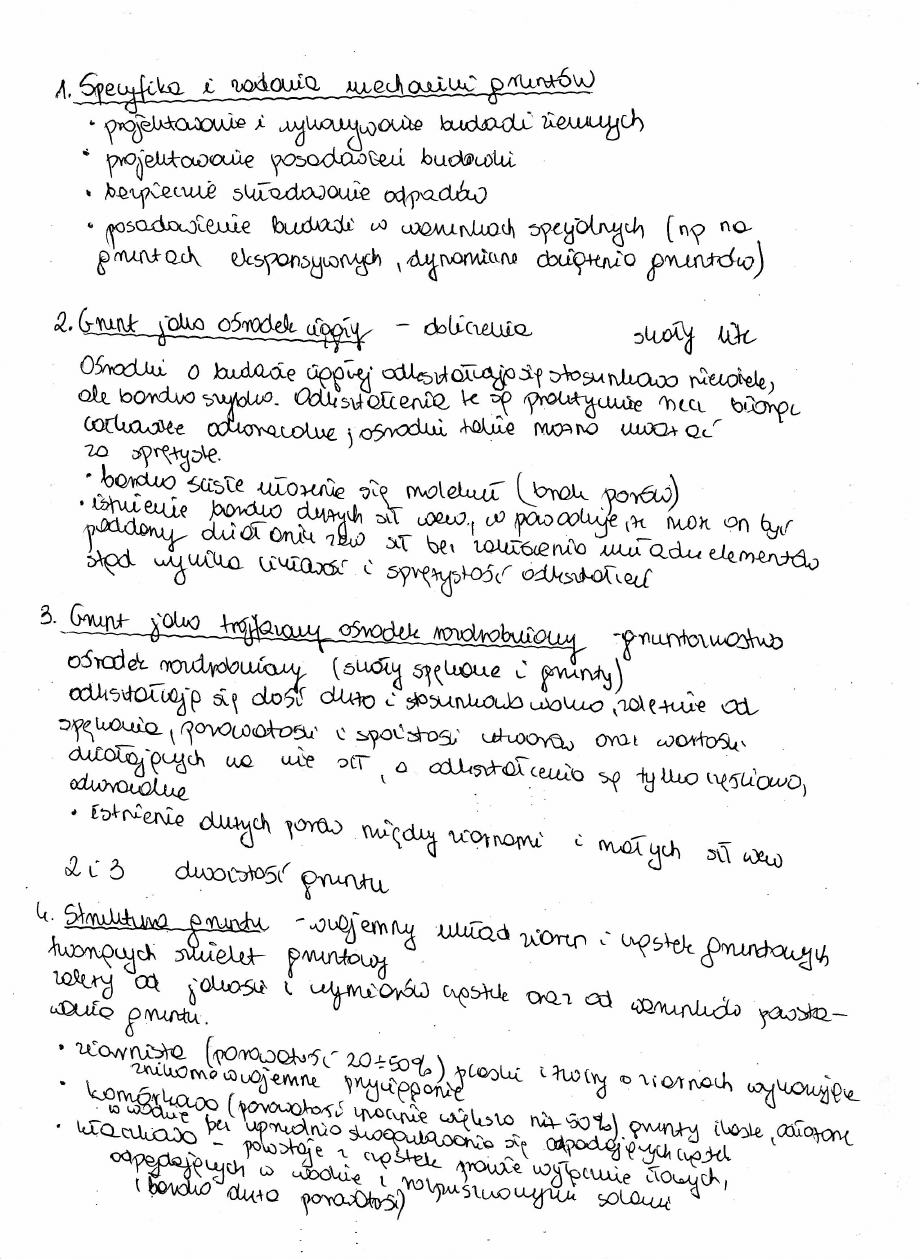 1. Specyfika i zadania mechaniki gruntów
• projektowanie i wykonywanie budowli ziemnych
• projektowanie posadowień budowli
• bezpiecznie składowanie odpadów
• posadowienie budowli w warunkach specjalnych (np na
gruntach ekspansywnych, dynamiczne obciążenia gruntów)
2. Grunt jako ośrodek ciągły – obliczenia skały lite
Ośrodki o budowie ciągłej odkształcają się stosunkowo niewiele,
ale bardzo szybko. Odkształcenia te są praktycznie rzecz biorąc
całkowicie odwracalne, ośrodki takie można uważać
za sprężyste.
• bardzo ścisłe ułożenie się molekuł (brak porów)
• istnienie bardzo dużych sił wew, co powoduje, że może on być
poddany działaniu zew sił bez zniszczenia układu elementów
stąd wynika ciągłość i sprężystość odkształceń
3. Grunt jako trójfazowy ośrodek rozdrobniony – gruntoznawstwo
ośrodek rozdrobniony (skały spękane i grunty)
odkształcają się dość dużo i stosunkowo wolno, zależnie od
spękania, porowatości i spoistości utworów oraz wartości
działających na nie sił, a odkształcenia są tylko częściowo,
odwracalne
• istnienie dużych porów między ziarnami i małych sił wew
2 i 3 dwoistość gruntu
4. Struktura gruntu – wzajemny układ ziaren i cząstek gruntowych
tworzących szkielet gruntowy
zależy od jakości i wymiarów cząstek oraz od warunków powsta–
wania gruntu.
• ziarnista (porowatość 20÷50%) piaski i żwiry o ziarnach wykazujące
znikome wzajemne przyciąganie
• komórkowa (porowatość znacznie większa niż 50%) grunty ilaste, osadzone
w wodzie bez uprzednio skoagulowania się opadających cząstek
• kłaczkowa – powstaje z cząstek prawie wyłącznie iłowych,
opadających w wodzie z rozpuszczonymi solami
(bardzo duża porowatość)